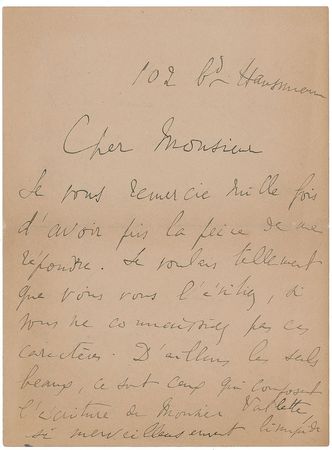 102 bd Haussmann
Cher Monsieur
Je vous remercie mille fois
d'avoir pris la peine de me
répondre. Je voulais tellement
que vous vous l'évitiez, si
vous ne connaissiez pas ces
caractères. D'ailleurs les seuls
beaux, ce sont ceux qui composent
l'écriture de Monsieur Vallette
si merveilleusement limpide